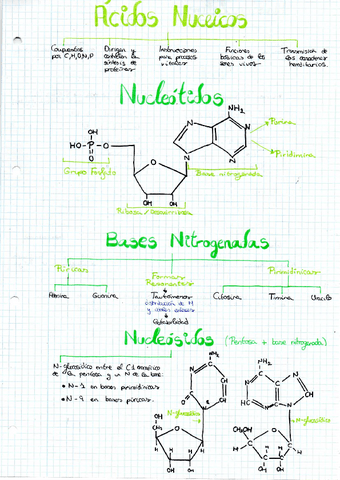 Ácidos Nucleicos
Compuestos por C,H,O,N,P
Dirigen y controlan la síntesis de proteínas
Instrucciones para procesos vitales
Funciones básicas de los seres vivos
Transmisión de los caracteres hereditarios
Nucleótidos
NH2
Purina
Pirimidina
OH
HO-P-O
O
OH
Grupo Fosfato
O
N
N
N
N
Base nitrogenada
OH OH
Bases Nitrogenadas
Púricas
Formas Resonantes
Pirimidínicas
Adenina
Guanina
Tautómeros
distribución de H
Citosina
Timina
Uracilo
Nucleósidos (Pentosa + base nitrogenada)
N-glucosídico entre el C1 anomérico
de la pentosa y un N de la base.
• N-1 en bases pirimidínicas
• N-9 en bases púricas.
NH2
NH2
N-glucosídico
N-glucosídico
OH OH
OH OH